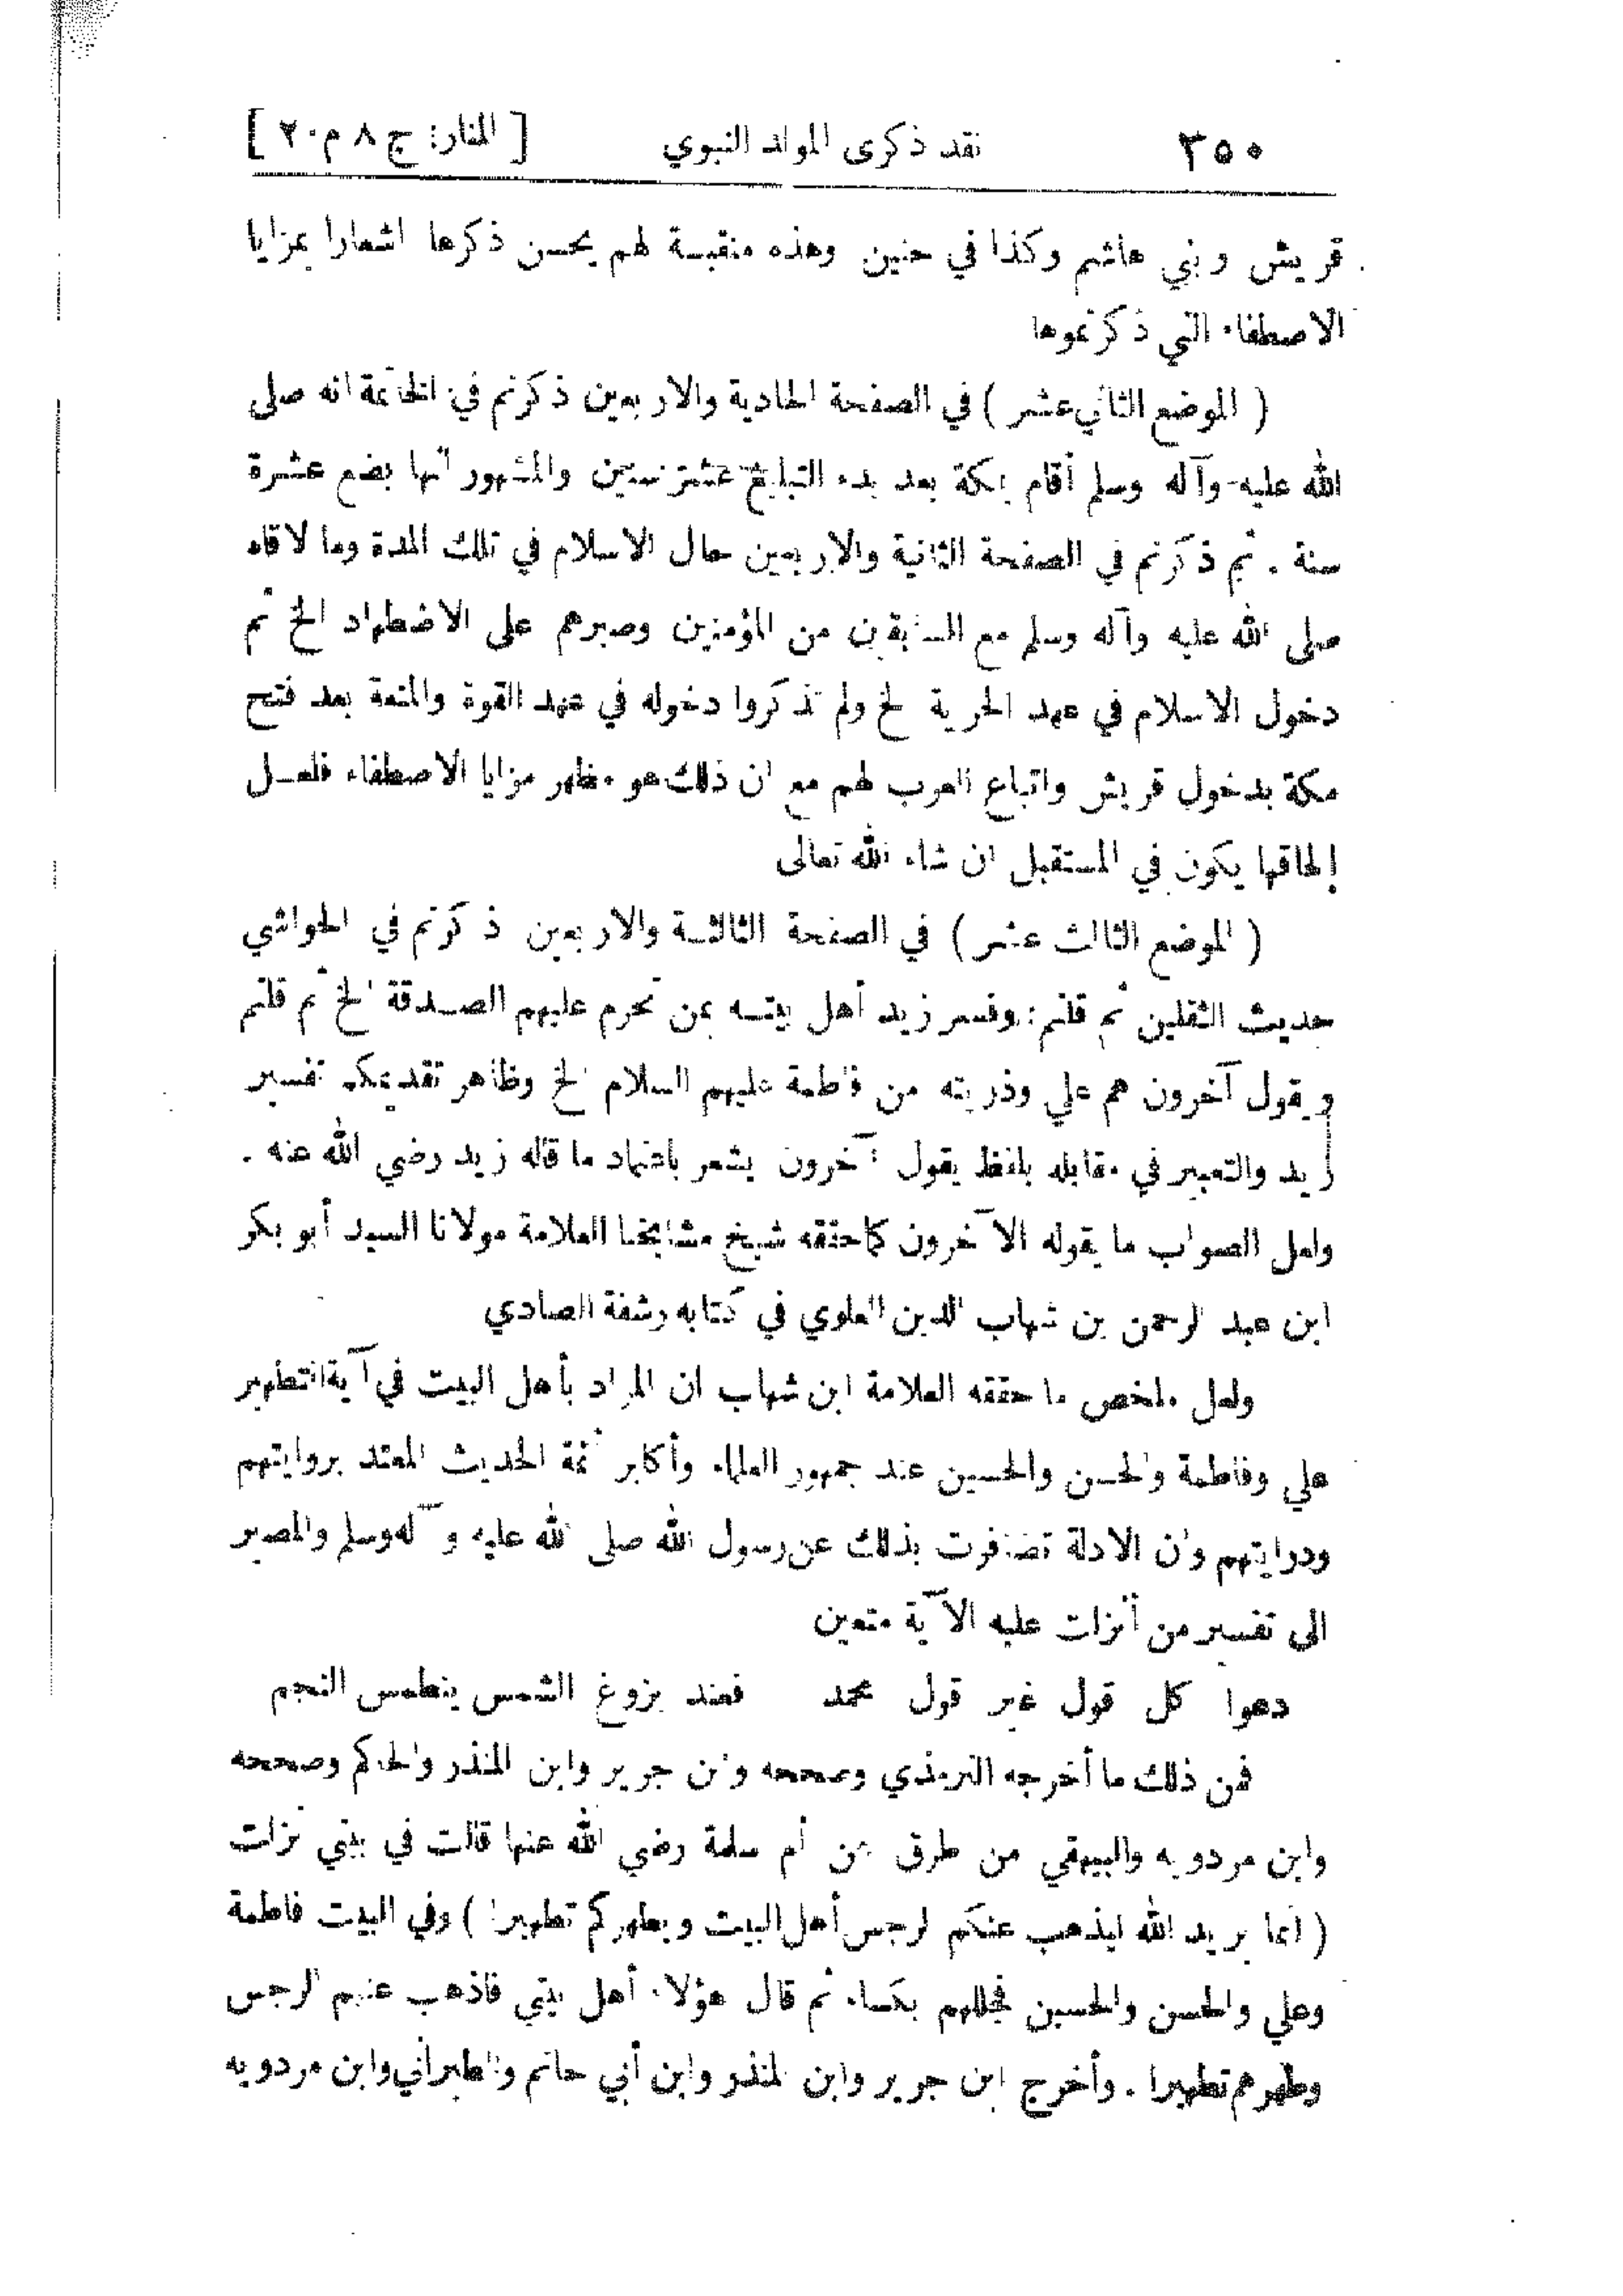 ٣٥٠ نقد ذكرى المولد النبوي [ المنار: ج ٨ م ٢٠ ]
قريش وبني هاشم وكذا في حنين وهذه منقبة لهم يحسن ذكرها اشعارا بمزايا
الاصطفاء التي ذكرتموها
( الموضع الثاني عشر ) في الصفحة الحادية والاربعين ذكرتم في الخاتمة انه صلى
الله عليه وآله وسلم أقام بمكة بعد بدء التبليغ عشر سنين والمشهور أنها بضع عشرة
سنة . ثم ذكرتم في الصفحة الثانية والاربعين حال الاسلام في تلك المدة وما لاقاه
صلى الله عليه وآله وسلم مع السابقين من المؤمنين وصبرهم على الاضطهاد الخ ثم
دخول الاسلام في عهد الحرية الخ ولم تذكروا دخوله في عهد القوة والمنعة بعد فتح
مكة بدخول قريش واتباع العرب لهم مع ان ذلك هو مظهر مزايا الاصطفاء فلعل
إلحاقها يكون في المستقبل ان شاء الله تعالى
( الموضع الثالث عشر ) في الصفحة الثالثة والاربعين ذكرتم في الحواشي
حديث الثقلين ثم قلتم: وفسر زيد أهل بيته بمن تحرم عليهم الصدقة الخ ثم قلتم
ويقول آخرون هم علي وذريته من فاطمة عليهم السلام الخ وظاهر تقديمكم تفسير
زيد والتعبير في مقابله بلفظ يقول آخرون يشعر باعتماد ما قاله زيد رضي الله عنه .
ولعل الصواب ما يقوله الآخرون كما حققه شيخ مشايخنا العلامة مولانا السيد أبو بكر
ابن عبد الرحمن بن شهاب الدين العلوي في كتابه رشفة الصادي
ولعل ملخص ما حققه العلامة ابن شهاب ان المراد بأهل البيت في آية التطهير
علي وفاطمة والحسن والحسين عند جمهور العلماء وأكابر أئمة الحديث المعتد بروايتهم
ودرايتهم وان الادلة تضافرت بذلك عن رسول الله صلى الله عليه وآله وسلم والمصير
الى تفسير من أنزلت عليه الآية متعين
دعوا كل قول غير قول محمد فعند بزوغ الشمس ينطمس النجم
فمن ذلك ما أخرجه الترمذي وصححه وابن جرير وابن المنذر والحاكم وصححه
وابن مردويه والبيهقي من طرق عن أم سلمة رضي الله عنها قالت في بيتي نزلت
( انما يريد الله ليذهب عنكم الرجس أهل البيت ويطهركم تطهيرا ) وفي البيت فاطمة
وعلي والحسن والحسين فجللهم بكساء ثم قال هؤلاء أهل بيتي فاذهب عنهم الرجس
وطهرهم تطهيرا . وأخرج ابن جرير وابن المنذر وابن أبي حاتم والطبراني وابن مردويه